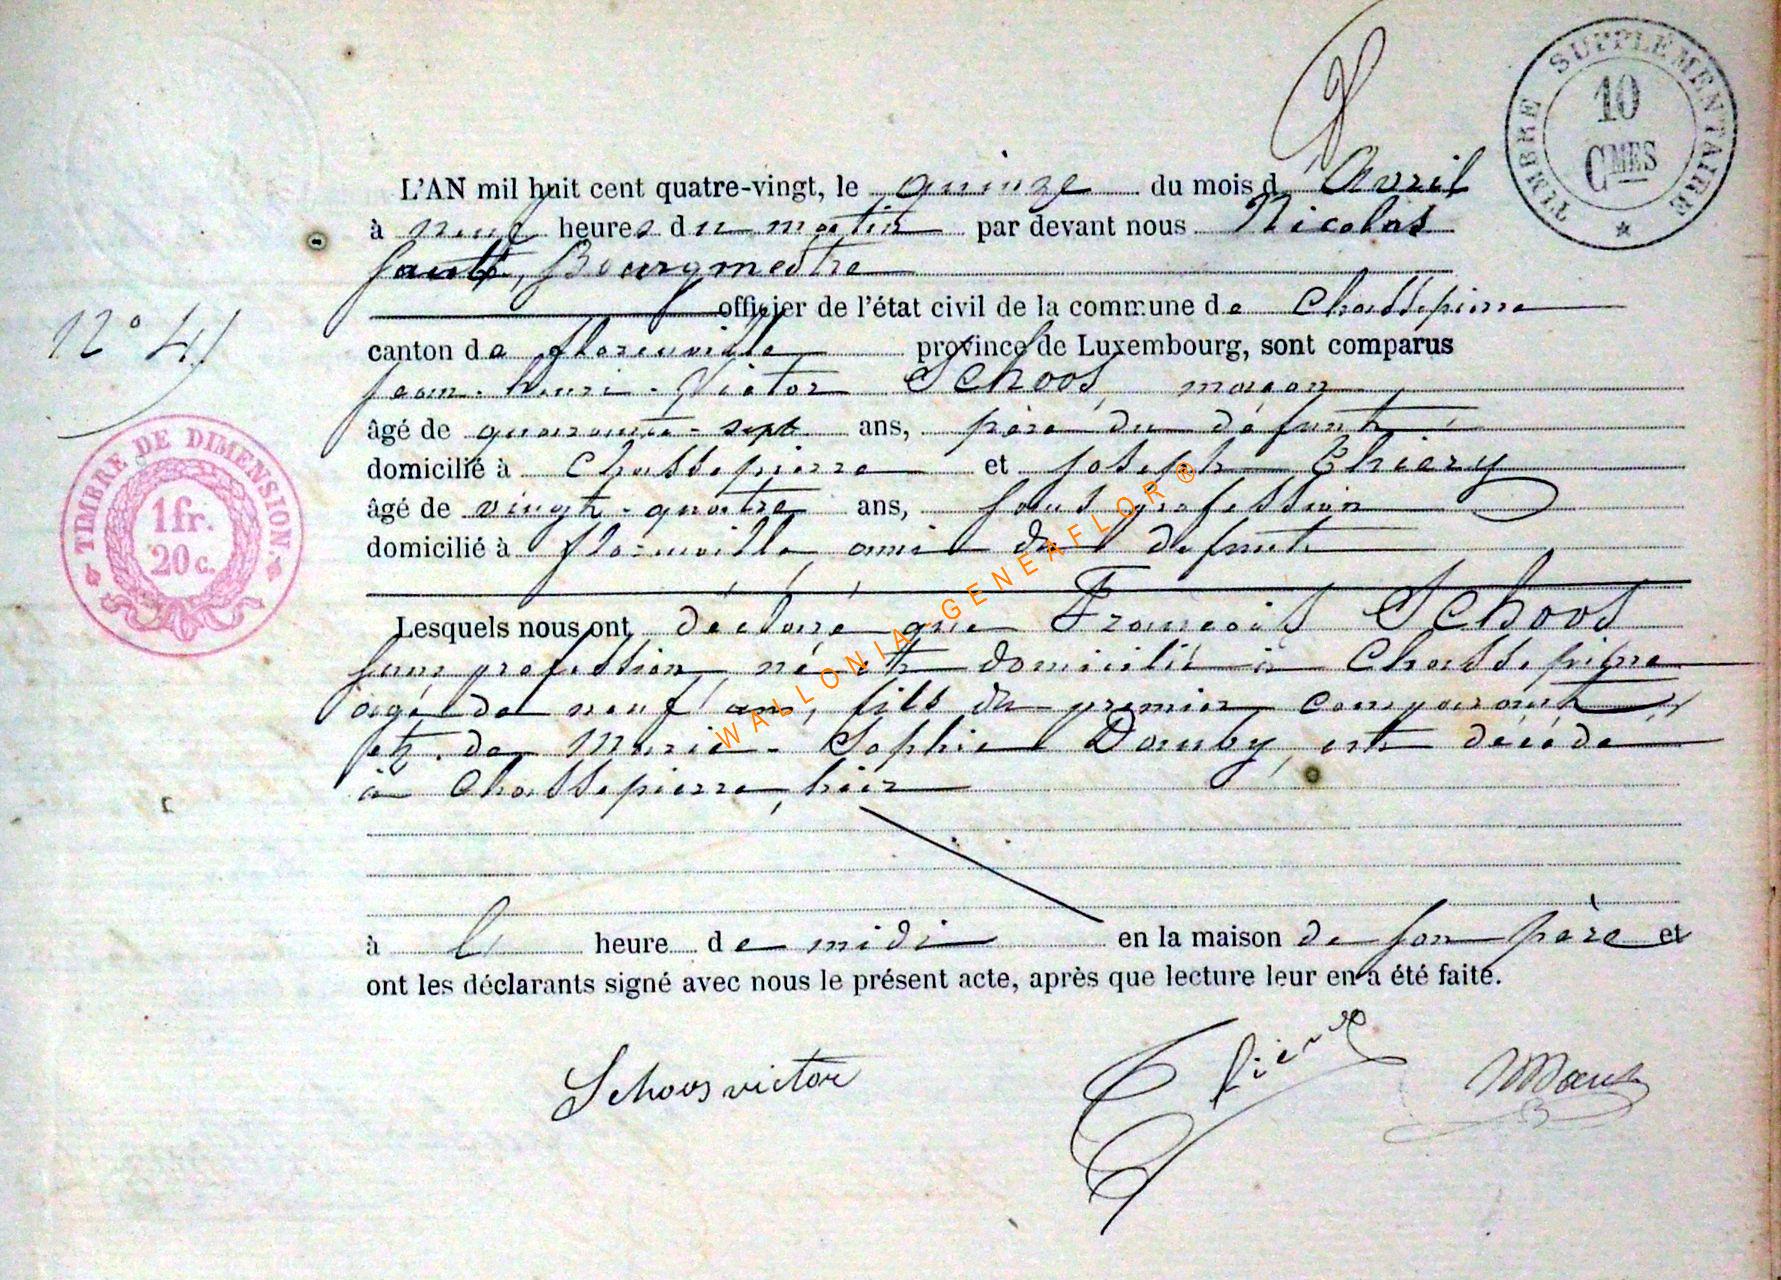 TIMBRE SUPPLÉMENTAIRE
10
CMES
L'AN mil huit cent quatre-vingt, le quinze du mois d'Avril
à neuf heures du matin par devant nous Nicolas
Bourgmestre
officier de l'état civil de la commune de Chassepierre
N° 4
canton de florenville province de Luxembourg, sont comparus
jean-henri-Victor Schoos, maçon
âgé de quarante-sept ans, père du défunt
domicilié à Chassepierre et joseph Thiery
âgé de vingt-quatre ans, sans profession
domicilié à florenville, ami du défunt
TIMBRE DE DIMENSION.
1fr.
20c.
WALLONIA-GENEAFLOR®
Lesquels nous ont déclaré que François Schoos
sans profession, né et domicilié à Chassepierre
âgé de neuf ans, fils du premier comparant
et de Marie-Sophie Dauby, est décédé
à Chassepierre, hier
à heure de midi en la maison de son père et
ont les déclarants signé avec nous le présent acte, après que lecture leur en a été faite.
Schoos victor